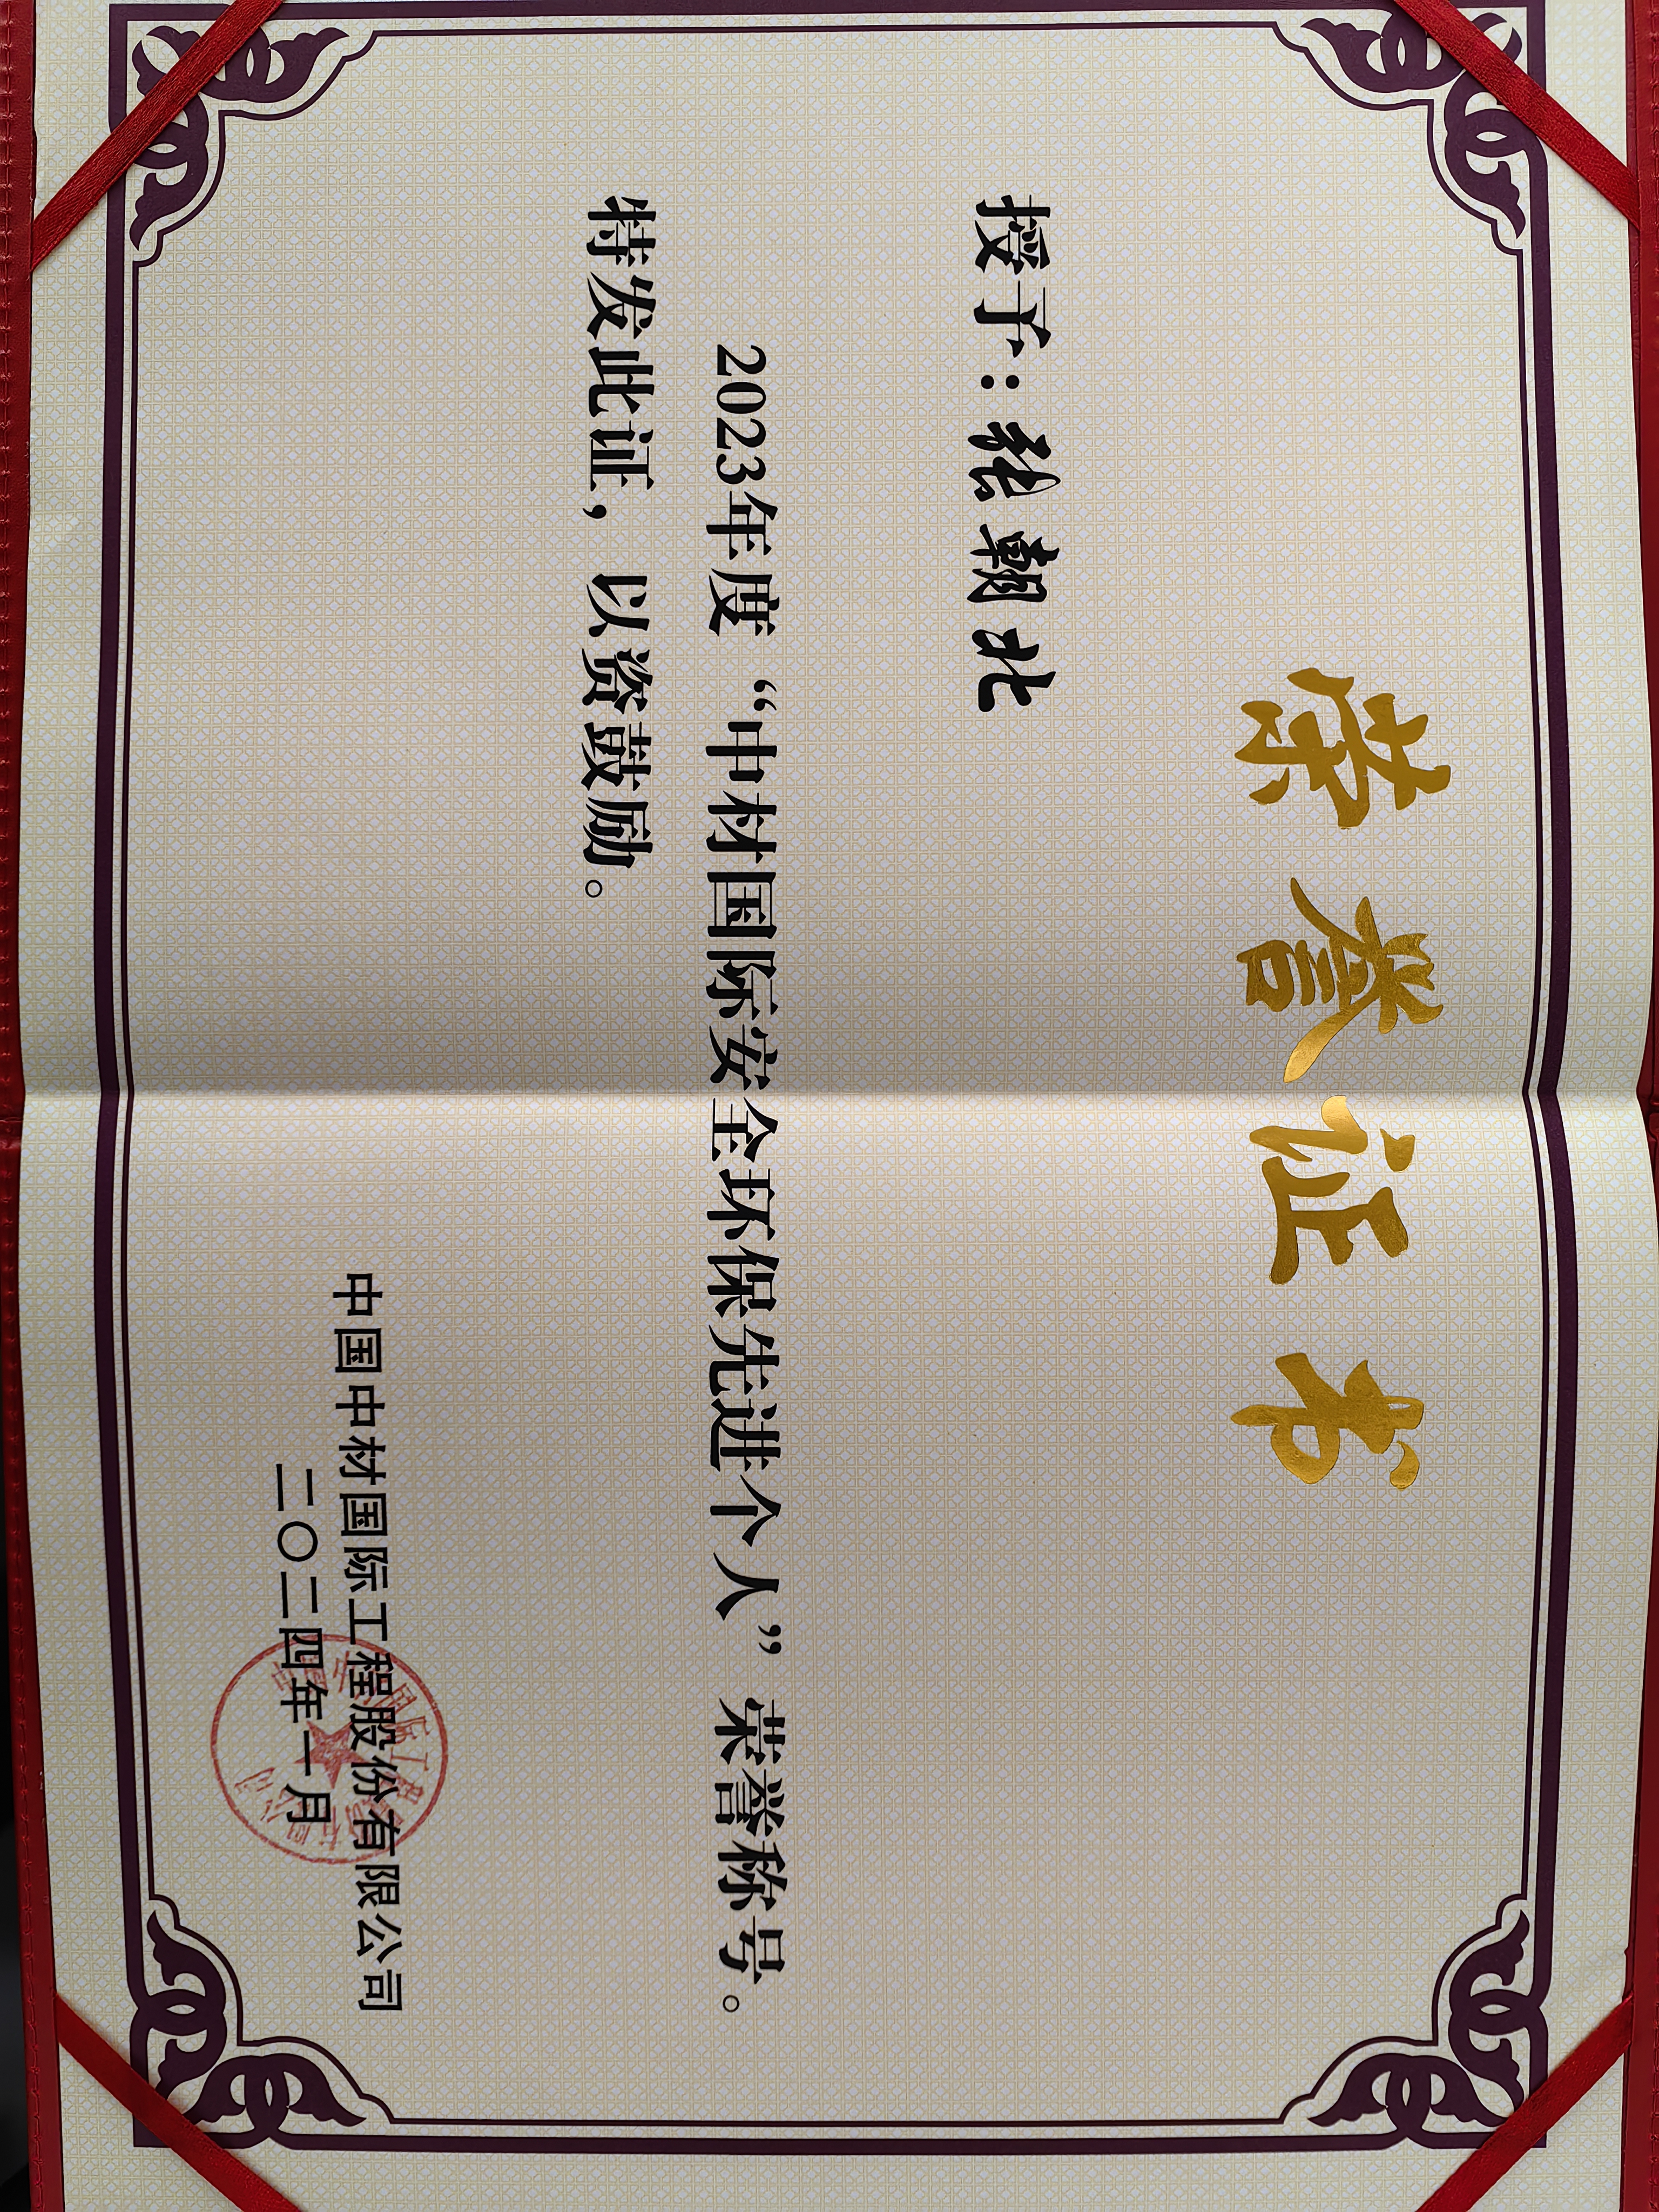 荣誉证书
授予：张朝北
2023年度“中材国际安全环保先进个人”荣誉称号。
特发此证，以资鼓励。
中国中材国际工程股份有限公司
二〇二四年一月